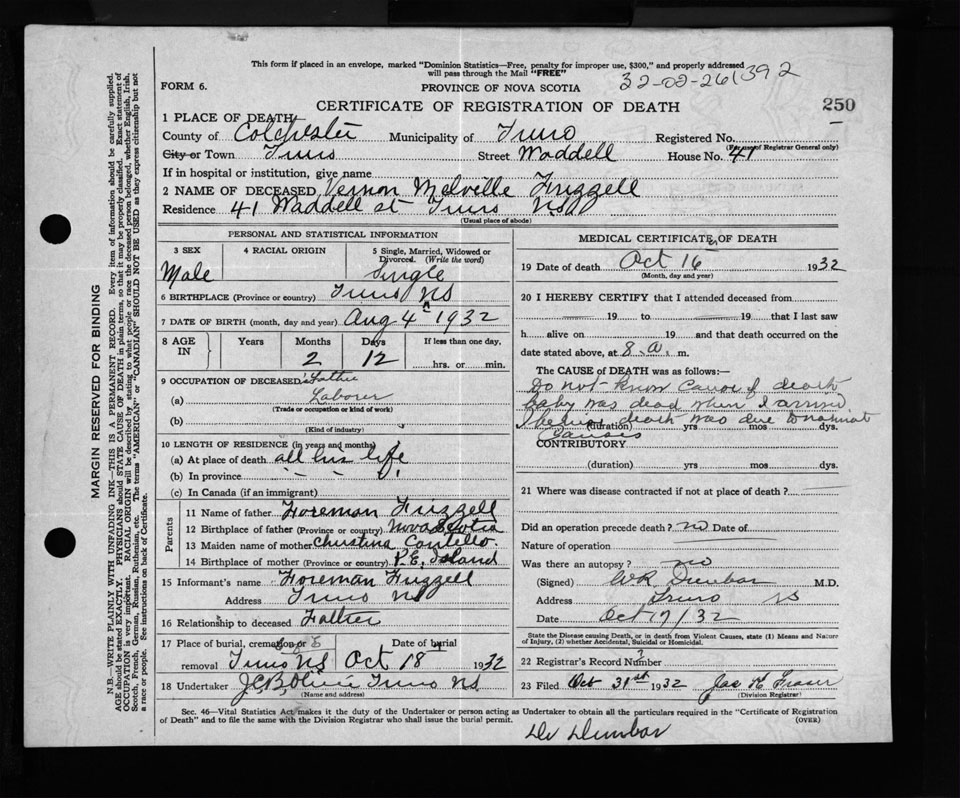 This form if placed in an envelope, marked "Dominion Statistics—Free, penalty for improper use, $300," and properly addressed
will pass through the Mail "FREE"
32-02-261392
FORM 6.
PROVINCE OF NOVA SCOTIA
CERTIFICATE OF REGISTRATION OF DEATH
250
1 PLACE OF DEATH
County of Colchester Municipality of Truro Registered No.
(For use of Registrar General only)
City or Town Truro Street Waddell House No. 41
If in hospital or institution, give name
2 NAME OF DECEASED Vernon Melville Frizzell
Residence 41 Waddell st Truro NS
(Usual place of abode)
PERSONAL AND STATISTICAL INFORMATION
3 SEX 4 RACIAL ORIGIN 5 Single, Married, Widowed or Divorced. (Write the word)
Male Single
6 BIRTHPLACE (Province or country) Truro NS
7 DATE OF BIRTH (month, day and year) Aug 4 1932
8 AGE IN Years Months Days If less than one day,
2 12 hrs. or min.
9 OCCUPATION OF DECEASED Father
(a) Laborer
(Trade or occupation or kind of work)
(b)
(Kind of industry)
10 LENGTH OF RESIDENCE (in years and months)
(a) At place of death all his life
(b) In province
(c) In Canada (if an immigrant)
Parents
11 Name of father Foreman Frizzell
12 Birthplace of father (Province or country) Nova Scotia
13 Maiden name of mother Christina Costello.
14 Birthplace of mother (Province or country) P.E. Island
15 Informant's name Foreman Frizzell
Address Truro NS
16 Relationship to deceased Father
17 Place of burial, cremation or removal Truro NS Date of burial Oct 18 1932
18 Undertaker Truro NS.
(Name and address)
MEDICAL CERTIFICATE OF DEATH
19 Date of death Oct 16 1932
(Month, day and year)
20 I HEREBY CERTIFY that I attended deceased from
19 to 19 that I last saw
h alive on 19 and that death occurred on
date stated above, at 8 a. m.
The CAUSE of DEATH was as follows:—
Do not know cause of death
baby was dead when I arrived
I believe death was due to natural
(duration) yrs mos dys.
causes
CONTRIBUTORY
(duration) yrs mos dys.
21 Where was disease contracted if not at place of death?
Did an operation precede death? no Date of
Nature of operation
Was there an autopsy? no
(Signed) WR Dunbar M.D.
Address Truro NS
Date Oct 17/32
State the Disease causing Death, or in death from Violent Causes, state (1) Means and Nature
of Injury, (2) whether Accidental, Suicidal or Homicidal.
22 Registrar's Record Number
23 Filed Oct 31st 1932 Jas H Fraser
(Division Registrar)
Sec. 46—Vital Statistics Act makes it the duty of the Undertaker or person acting as Undertaker to obtain all the particulars required in the "Certificate of Registration
of Death" and to file the same with the Division Registrar who shall issue the burial permit.
(OVER)
Dr Dunbar
MARGIN RESERVED FOR BINDING
N.B.—WRITE PLAINLY WITH UNFADING INK—THIS IS A PERMANENT RECORD. Every item of information should be carefully supplied.
AGE should be stated EXACTLY. PHYSICIANS should STATE CAUSE OF DEATH in plain terms, so that it may be properly classified. Exact statement of
OCCUPATION is very important. RACIAL ORIGIN will be described by stating to what people or race the deceased person belonged, whether English, Irish,
Scotch, French, German, Russian, Ruthenian, etc. The terms "AMERICAN" or "CANADIAN" SHOULD NOT BE USED as they express citizenship but not
a race or people. See instructions on back of Certificate.